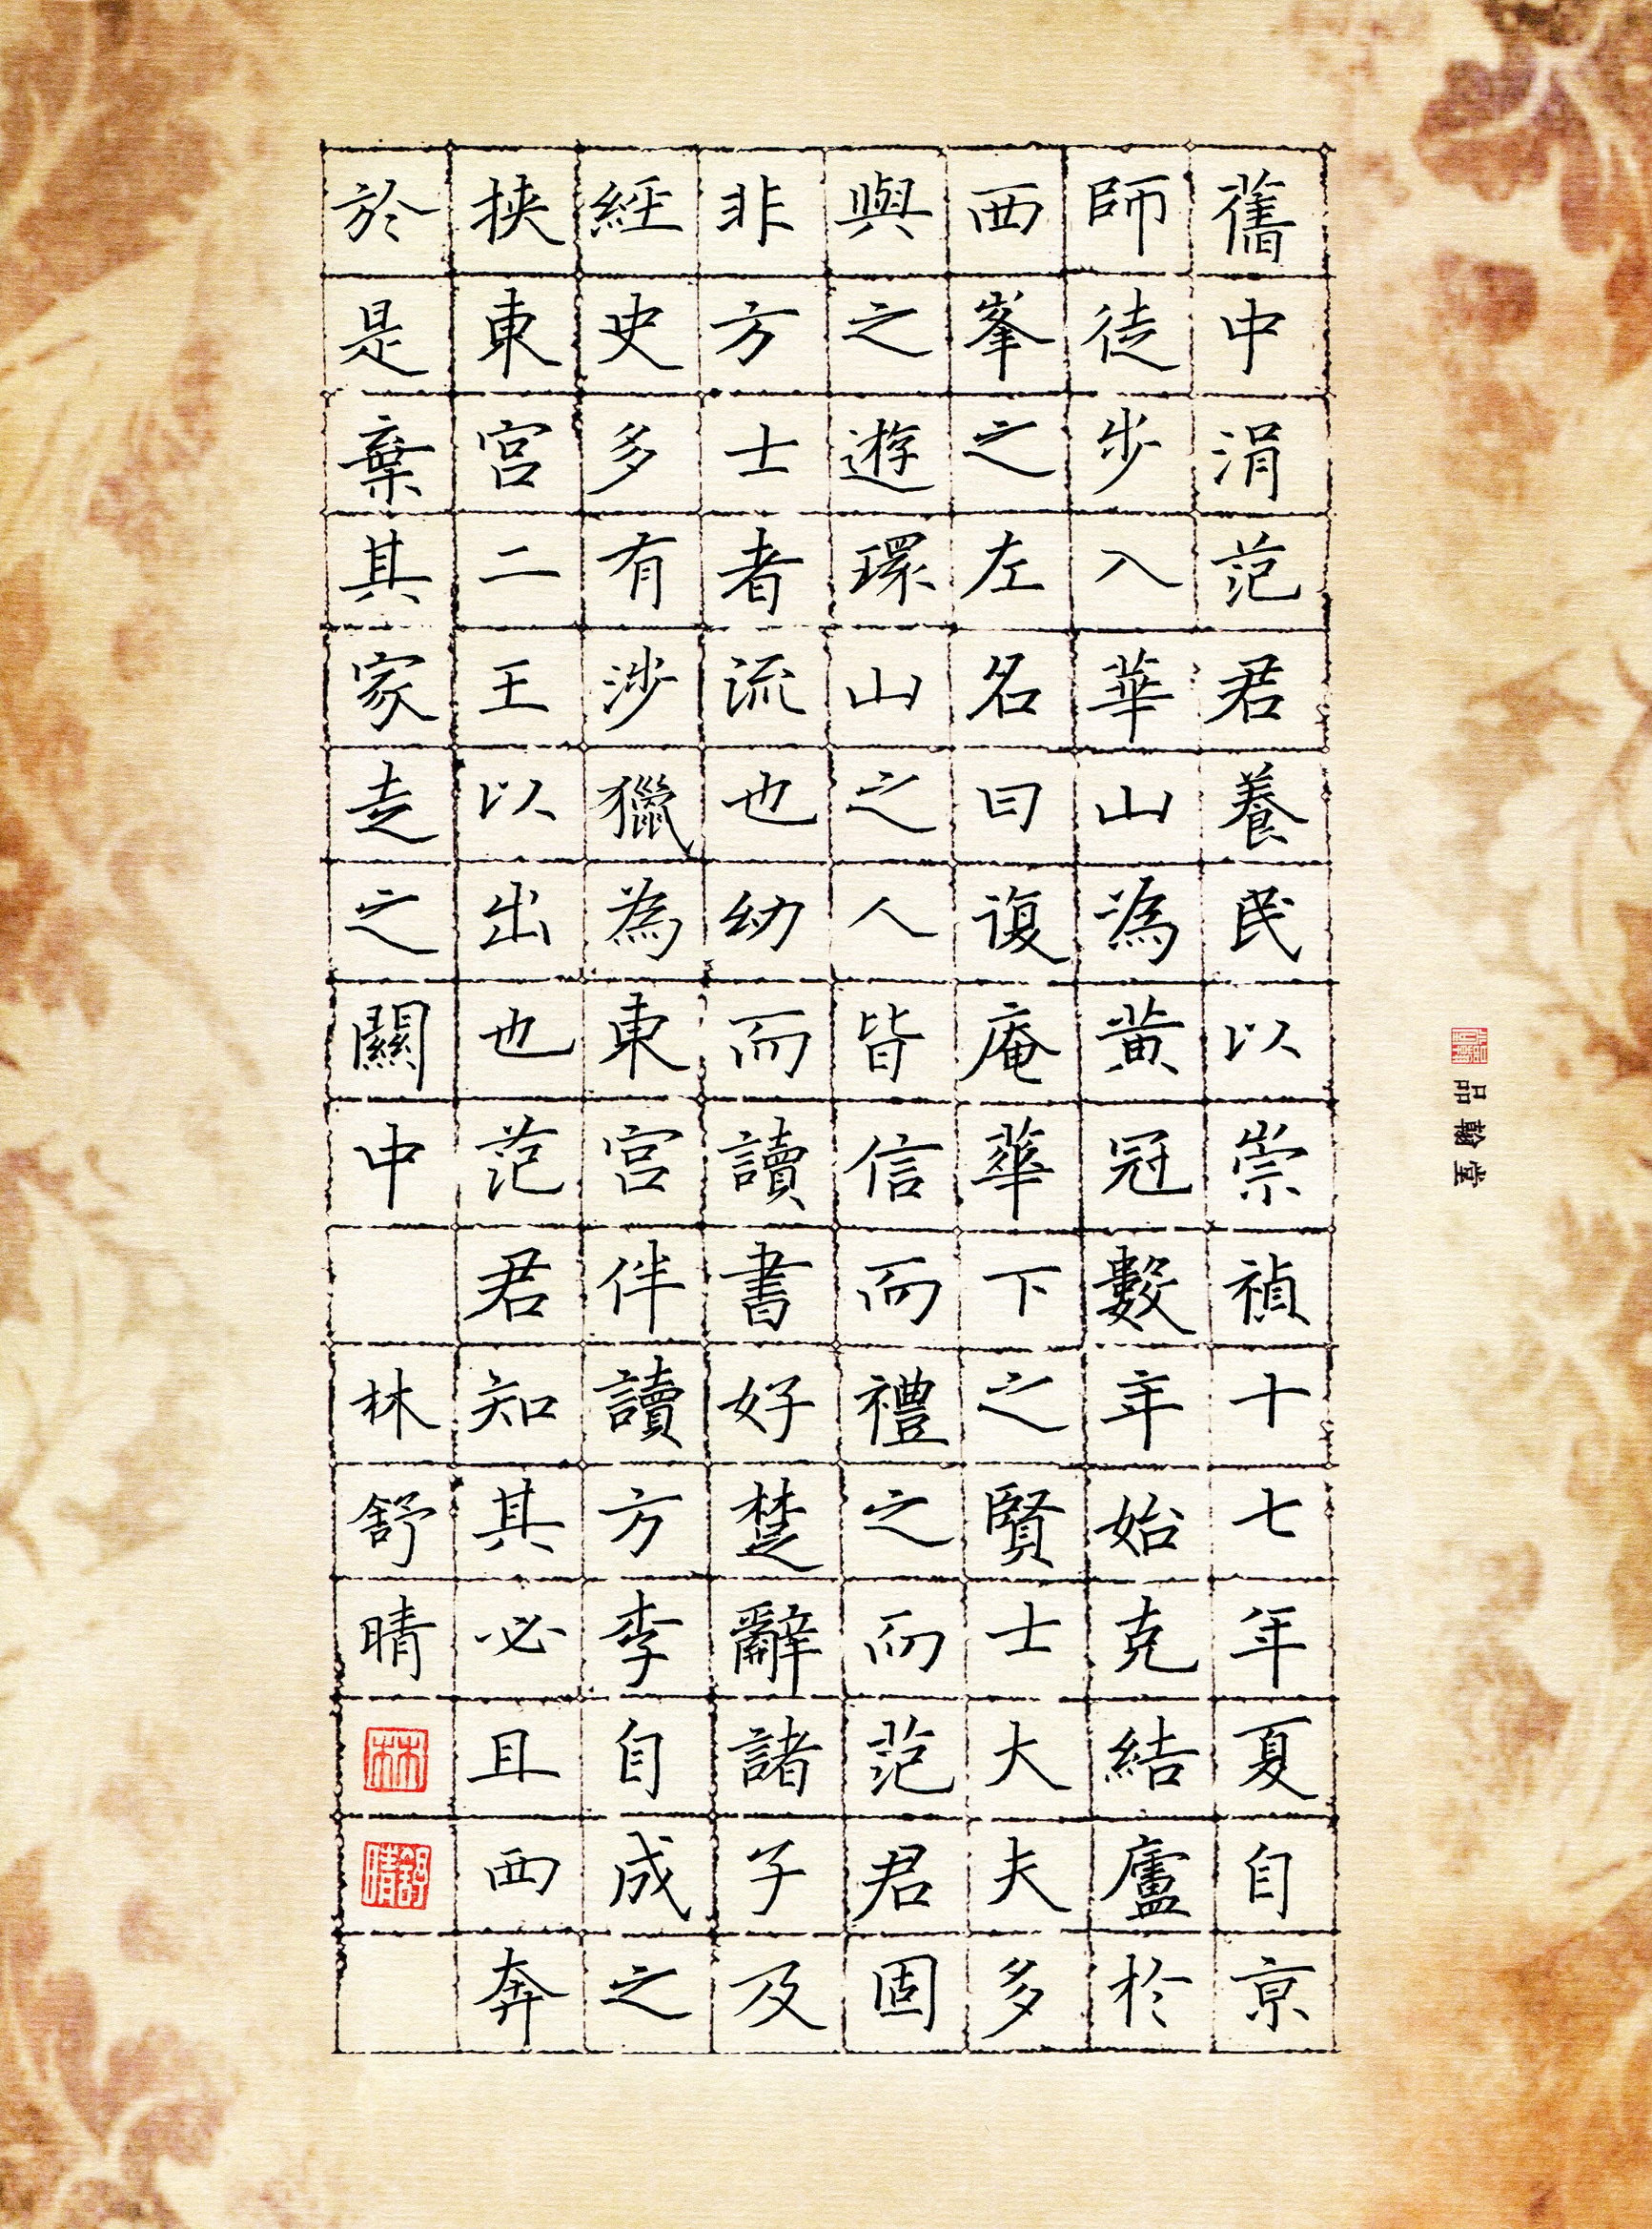 舊中涓范君養民以崇禎十七年夏自京
師徒步入華山為黃冠數年始克結廬於
西峯之左名曰復庵華下之賢士大夫多
與之遊環山之人皆信而禮之而范君固
非方士者流也幼而讀書好楚辭諸子及
經史多有涉獵為東宮伴讀方李自成之
挾東宮二王以出也范君知其必且西奔
於是棄其家走之關中
林舒晴
林
舒晴
品翰堂